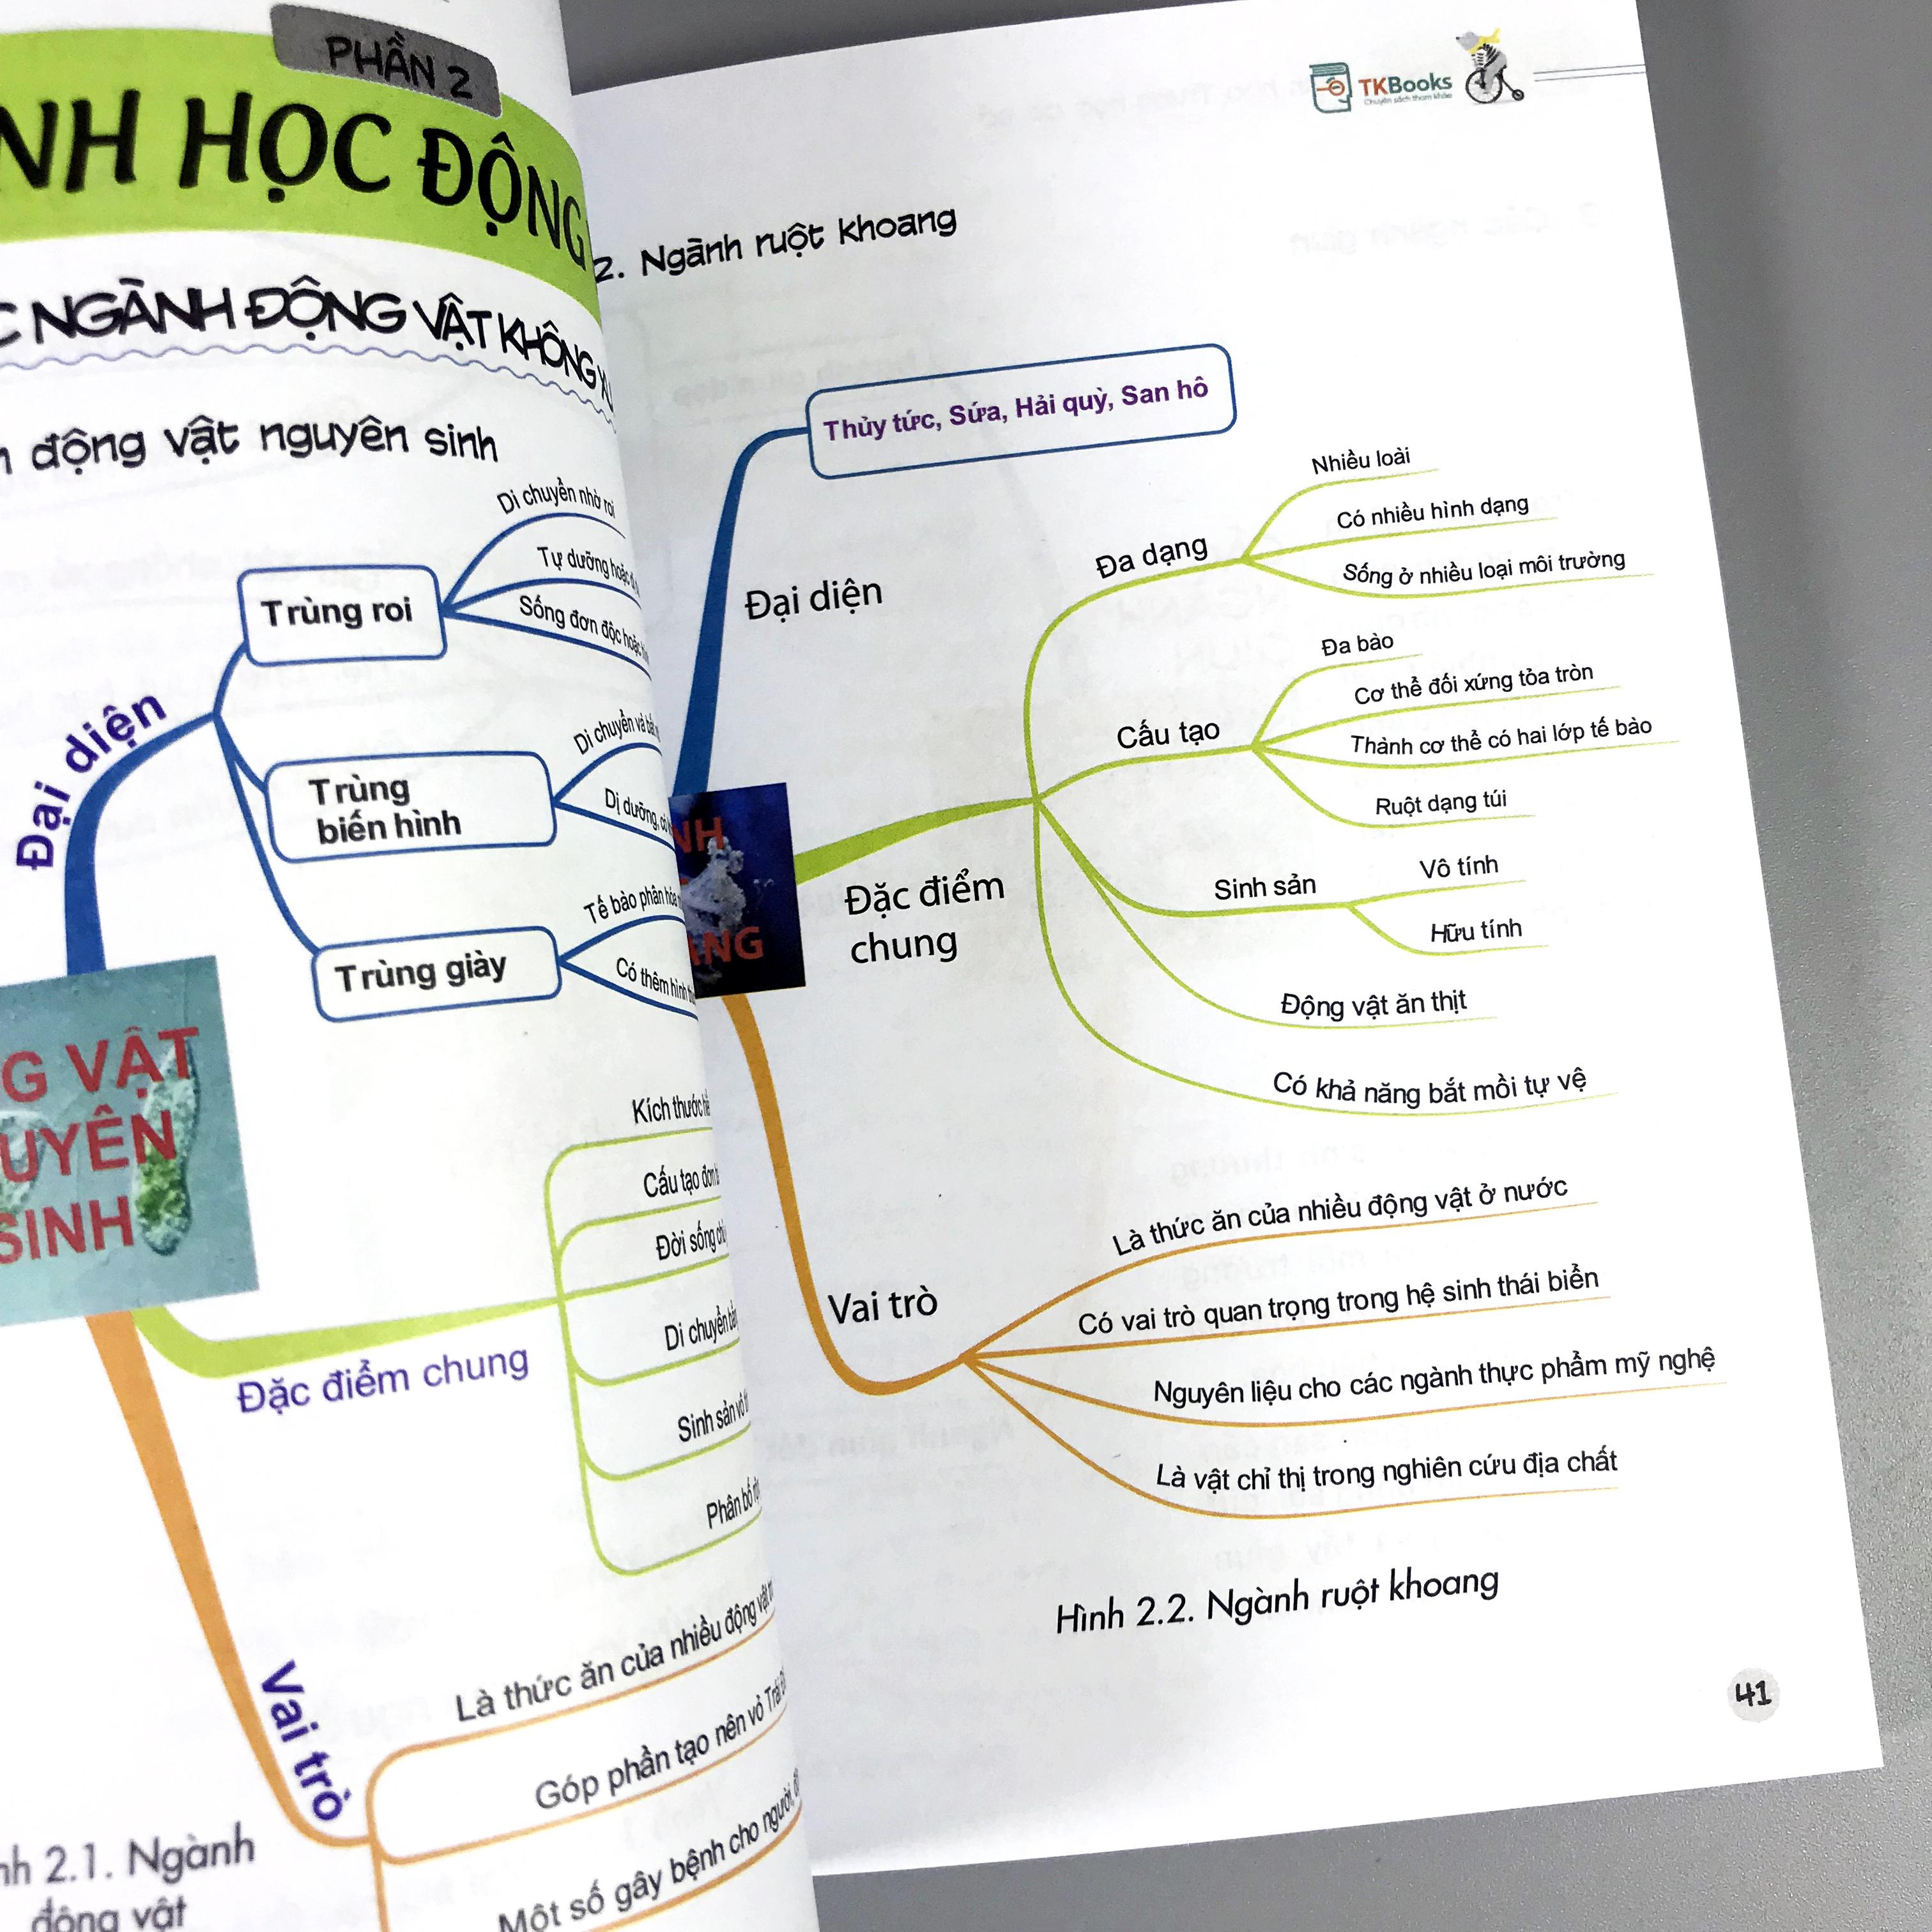 PHẦN 2
HỌC ĐỘNG
NGÀNH ĐỘNG VẬT KHÔNG
động vật nguyên sinh
Đại diện
Trùng roi
Di chuyển nhờ roi
Tự dưỡng hoặc
Sống đơn độc hoặc
Trùng
biến hình
Di chuyển và
Dị dưỡng,
Trùng giày
Tế bào phân hóa
Có thêm hình
VẬT
SINH
Đặc điểm chung
Kích thước
Cấu tạo đơn
Đời sống
Di chuyển
Sinh sản vô
Phân bố
Vai trò
Là thức ăn của nhiều động vật
Góp phần tạo nên vỏ Trái
Một số gây bệnh cho người,
2.1. Ngành
động vật
TKBooks
Chuyên sách tham khảo
2. Ngành ruột khoang
Đại diện
Thủy tức, Sứa, Hải quỳ, San hô
Đặc điểm
chung
Đa dạng
Nhiều loài
Có nhiều hình dạng
Sống ở nhiều loại môi trường
Cấu tạo
Đa bào
Cơ thể đối xứng tỏa tròn
Thành cơ thể có hai lớp tế bào
Ruột dạng túi
Sinh sản
Vô tính
Hữu tính
Động vật ăn thịt
Có khả năng bắt mồi tự vệ
Vai trò
Là thức ăn của nhiều động vật ở nước
Có vai trò quan trọng trong hệ sinh thái biển
Nguyên liệu cho các ngành thực phẩm mỹ nghệ
Là vật chỉ thị trong nghiên cứu địa chất
Hình 2.2. Ngành ruột khoang
41